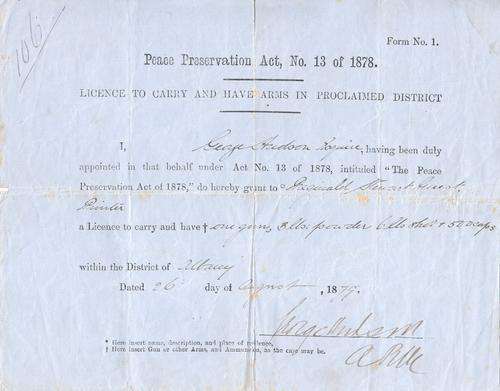 106
Form No. 1.
Peace Preservation Act, No. 13 of 1878.
LICENCE TO CARRY AND HAVE ARMS IN PROCLAIMED DISTRICT
I, George Hudson Esquire, having been duly
appointed in that behalf under Act No. 13 of 1878, intituled "The Peace
Preservation Act of 1878," do hereby grant to * Stewart
Printer
a Licence to carry and have † one gun, 3 lbs. powder 6 lbs shot & 500 caps
within the District of Albany
Dated 26 day of August, 1879.
George Hudson
ARM
* Here insert name, description, and place of residence.
† Here insert Gun or other Arms, and Ammunition, as the case may be.